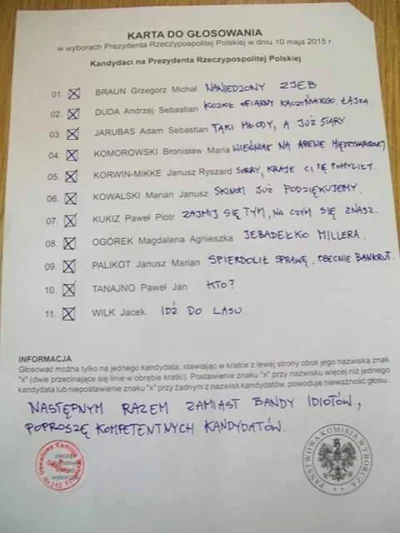 KARTA DO GŁOSOWANIA
w wyborach Prezydenta Rzeczypospolitej Polskiej w dniu 10 maja 2015 r.
Kandydaci na Prezydenta Rzeczypospolitej Polskiej
01. X BRAUN Grzegorz Michał NAWIEDZONY ZJEB
02. X DUDA Andrzej Sebastian KOZIOŁ OFIARNY KACZYŃSKIEGO. ŁAJZA.
03. X JARUBAS Adam Sebastian TAKI MŁODY, A JUŻ STARY
04. X KOMOROWSKI Bronisław Maria WIEŚNIAK NA ARENIE MIĘDZYNARODOWEJ
05. X KORWIN-MIKKE Janusz Ryszard SORRY, KRAJE CI SIĘ POMYLIŁY.
06. X KOWALSKI Marian Janusz SKINOM JUŻ PODZIĘKUJEMY.
07. X KUKIZ Paweł Piotr ZAJMIJ SIĘ TYM, NA CZYM SIĘ ZNASZ.
08. X OGÓREK Magdalena Agnieszka JEBADEŁKO MILLERA.
09. X PALIKOT Janusz Marian SPIERDOLIŁ SPRAWĘ. OBECNIE BANKRUT.
10. X TANAJNO Paweł Jan KTO?
11. X WILK Jacek IDŹ DO LASU
INFORMACJA
Głosować można tylko na jednego kandydata, stawiając w kratce z lewej strony obok jego nazwiska znak
"x" (dwie przecinające się linie w obrębie kratki). Postawienie znaku "x" przy nazwisku więcej niż jednego
kandydata lub niepostawienie znaku "x" przy żadnym z nazwisk kandydatów, powoduje nieważność głosu.
NASTĘPNYM RAZEM ZAMIAST BANDY IDIOTÓW,
POPROSZĘ KOMPETENTNYCH KANDYDATÓW.
PAŃSTWOWA KOMISJA WYBORCZA